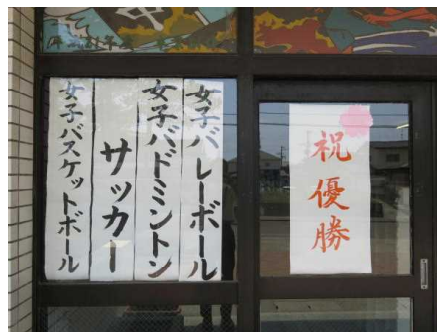 祝優勝
女子バレーボール
女子バドミントン
サッカー
女子バスケットボール